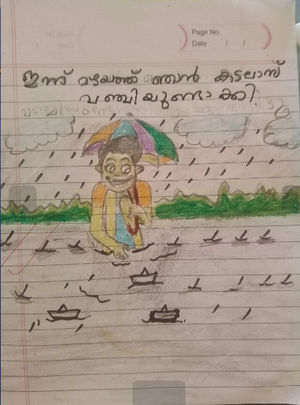 Page No:
Date / /
ഇന്ന് മഴയത്ത് ഞാൻ കടലാസ്
വഞ്ചിയുണ്ടാക്കി.